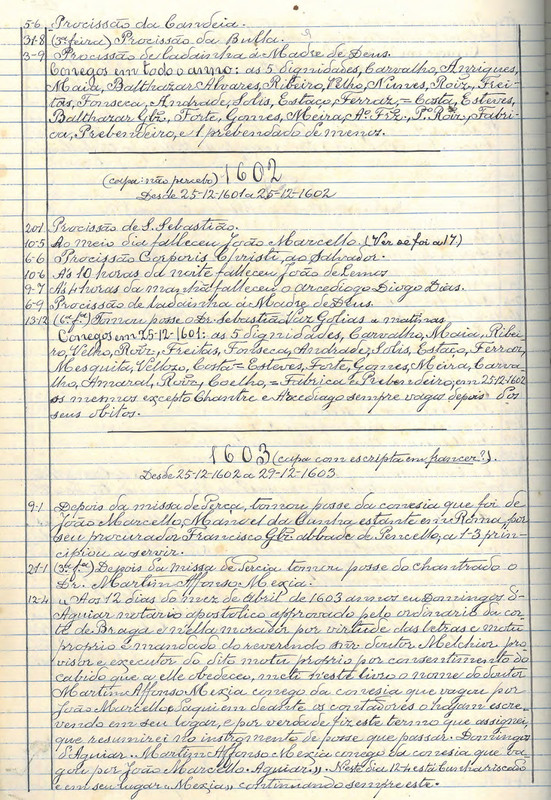 5-6 Procissão da Candeia.
31-8 (3ª feira) Procissão da Bulla.
3-9 Procissão de ladainha á Madre de Deus.
Conegos em todo o anno: as 5 dignidades, Carvalho, Anriques,
Maia, Balthazar Alvares, Ribeiro, Velho, Nunes, Roiz, Frei-
tas, Fonseca, Andrade, Solis, Estaço, Ferraz, = Costa, Esteves,
Balthazar Glz, Forte, Gomes, Meira, Aº Frz, Pº Roiz, Fabri-
ca, Prebendeiro, e 1 prebendado de menos.
(capa: não percebo) 1602
Desde 25-12-1601 a 25-12-1602
20-1 Procissão de S. Sebastião.
10-5 Ao meio dia falleceu João Marcello. (Ver se foi a 17)
6-6 Procissão Corporis Christi, ao Salvador.
10-6 A's 10 horas da noite falleceu João de Lemos
9-7 A's 4 horas da manhã falleceu o arcediogo Diogo Dias.
6-9 Procissão de ladainha á Madre de Deus.
13-12 (6ª fª) Tomou posse o Dr. Sebastião Vaz Golias a matinas
Conegos em 25-12-1601: as 5 dignidades, Carvalho, Maia, Ribei-
ro, Velho, Roiz, Freitas, Fonseca, Andrade, Solis, Estaço, Ferraz,
Mesquita, Vellozo, Costa = Esteves, Forte, Gomes, Meira, Carva-
lho, Amaral, Roiz, Coelho, = Fabrica e Prebendeiro, em 25-12-1602
os mesmos excepto Chantre e Arcediago sempre vagos depois dos
seus obitos.
1603 (capa com escripta em francez?).
Desde 25-12-1602 a 29-12-1603.
9-1 Depois da missa de Terça, tomou posse da conesia que foi de
João Marcello, Manoel da Cunha estante em Roma, por
seu procurador Francisco Glz abbade de Pencello, a 1-3 prin-
cipiou a servir.
21-1 (3ª fª) Depois da missa de Tercia tomou posse do chantrado o
Dr. Martim Affonso Mexia.
12-4 "Aos 12 dias do mez de abril de 1603 annos eu Domingos d'
Aguiar notario apostolico approvado pelo ordinario da cor-
te de Braga e nella morador por virtude das letras e motu
proprio e mandado do reverendo snr doutor Melchior pro
visor e executor do dito motu proprio por consentimento do
cabido que a elle obedeceo, metti n'este livro o nome do doutor
Martim Affonso Mexia conego da conesia que vagou por
João Marcello, e aqui em deante os contadores o hajam escre-
vendo em seu logar, e por verdade fiz este termo que assignei,
que resumirei no instrumento de posse que passar. Domingos
d'Aguiar. Martim Affonso Mexia conego da conesia que va-
gou por João Marcello. Aguiar.". N'este dia 12-4 está Cunha riscado
e em seu logar "Mexia", continuando sempre este.